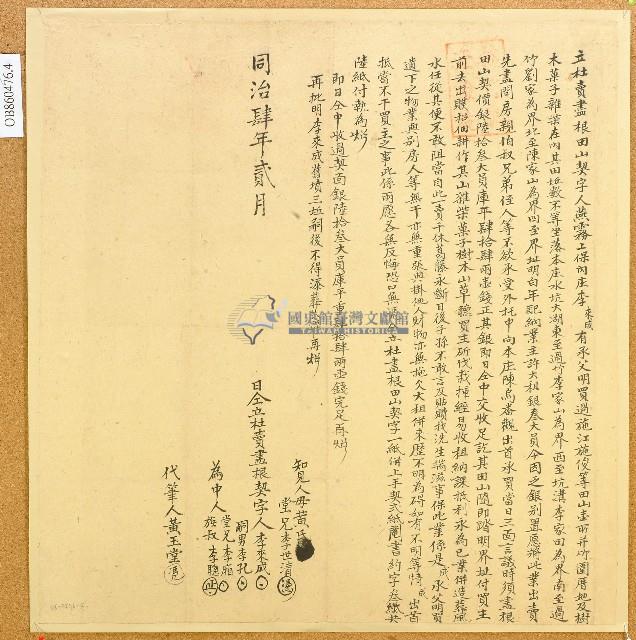 立杜賣盡根田山契字人燕霧上保內庄李來成有承父明買過施江施俊等田山壹所并竹圍厝地及樹
木菓子雜菜在內其田坵數不等坐落本庄水坑大湖東至過竹李家山為界西至坑溝李家田為界南至過
竹劉家為界北至陳家山為界四至界址明白年配納業主許大租銀叁大員今因乏銀別置愿將此業出賣
先盡問房親伯叔兄弟侄人等不欲承受外托中向本庄陳烏番觀出首承買當日三面言議時價盡根
田山契價銀陸拾叁大員庫平肆拾肆兩壹錢正其銀即日仝中交收足訖其田山隨即踏明界址付買主
前去出贌招佃耕作其山雜柴菓子樹木山草聽買主斫伐栽種經易收租納課抵利永為己業併造葬風
水任從其便不敢阻當自此一賣千休葛藤永斷日後子孫不敢言及貼贖找洗生端滋事保此業係是成承父明買
遺下之物業與別房人等無干亦無重張典掛他人財物亦無拖欠大租併來歷不明為碍如有不明等情成出首
抵當不干買主之事此係兩愿各無反悔恐口無憑立杜賣盡根田山契字一紙併上手契式紙鬮書約字叁紙共
陸紙付執為炤
即日仝中收過契面銀陸拾叁大員庫平重肆拾肆兩壹錢完足再炤
再批明李來成舊墳三坵嗣後不得添葬 再炤
同治肆年貳月 日仝立杜賣盡根契字人李來成
知見人母黃氏
堂兄李世清
嗣男李孔
堂兄李
為中人族叔李聰
代筆人黃玉堂
國史館臺灣文獻館
TAIWAN HISTORICA
OB860476.4